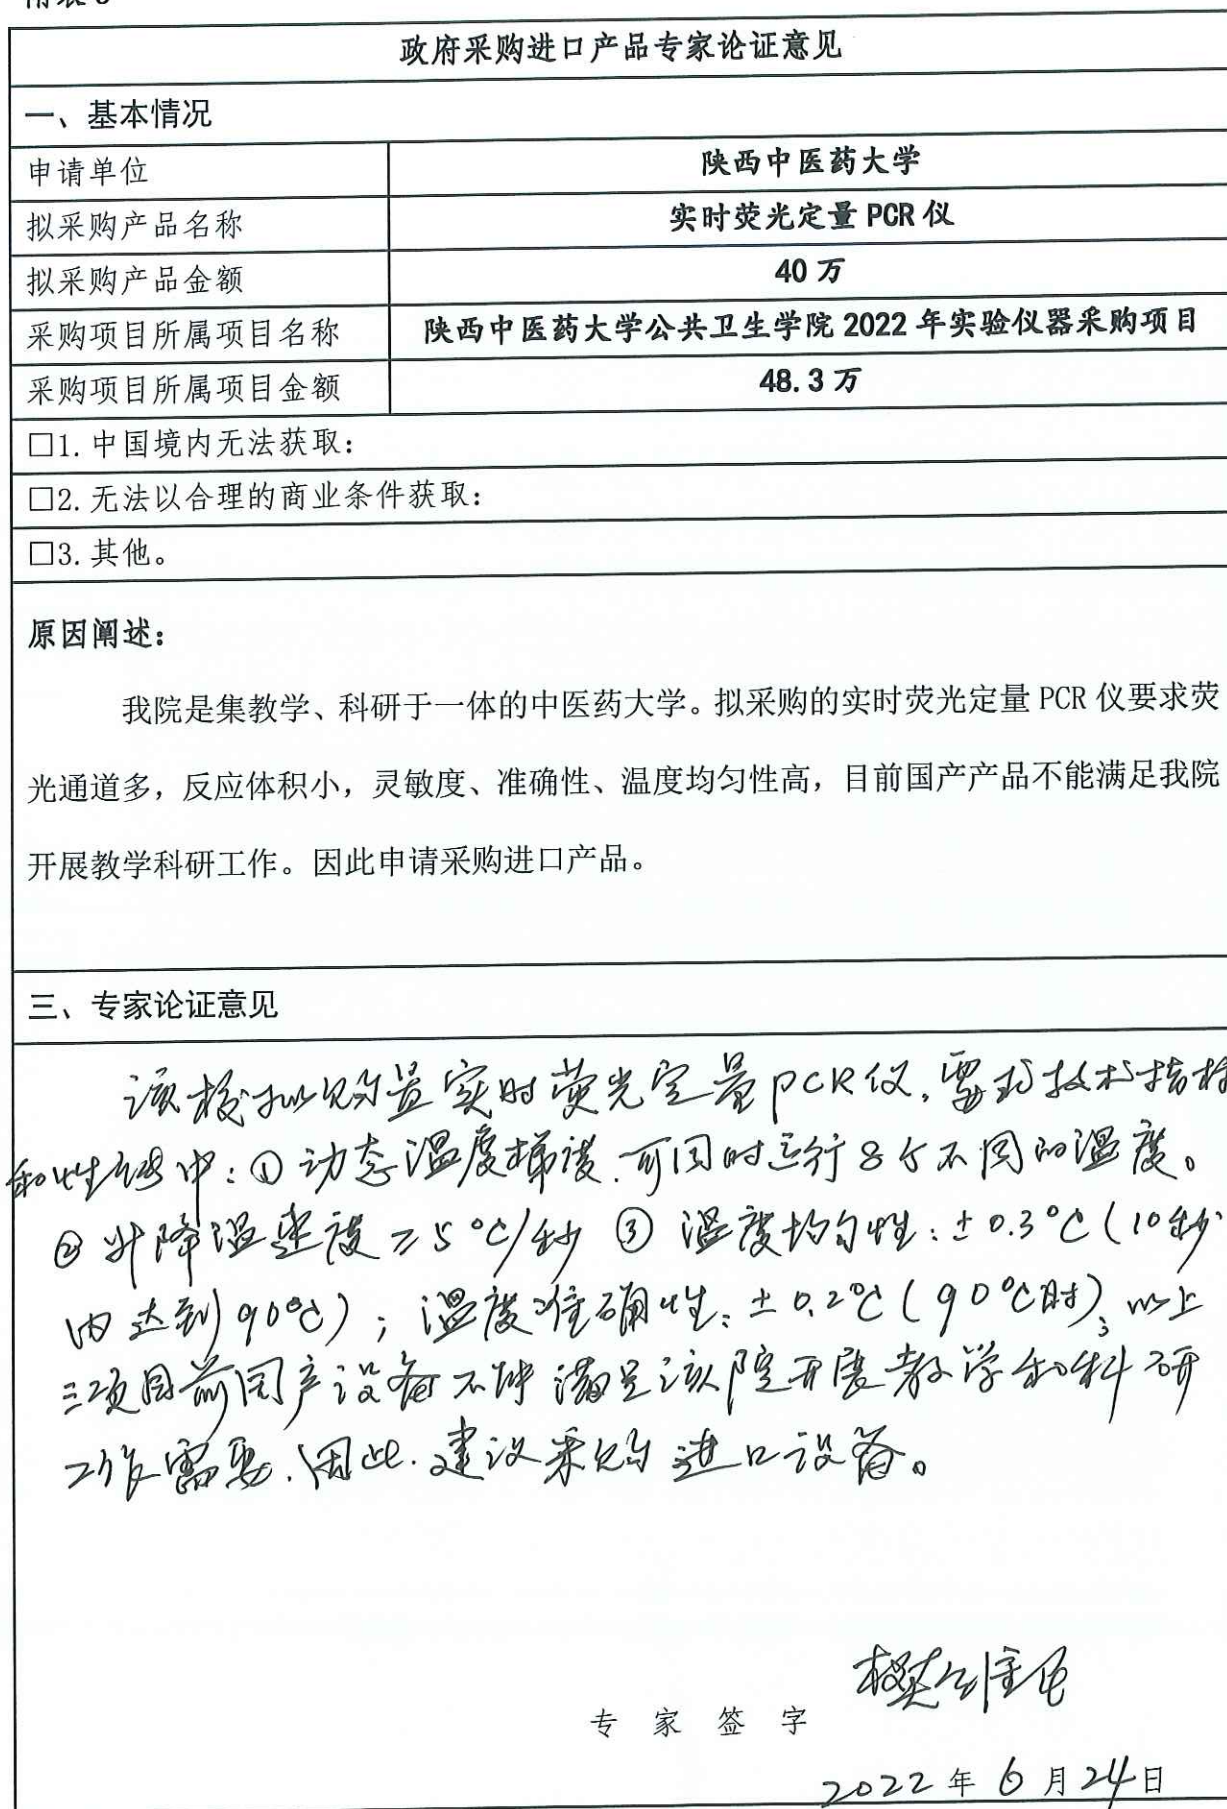 政府采购进口产品专家论证意见
一、基本情况
申请单位 陕西中医药大学
拟采购产品名称 实时荧光定量 PCR 仪
拟采购产品金额 40 万
采购项目所属项目名称 陕西中医药大学公共卫生学院 2022 年实验仪器采购项目
采购项目所属项目金额 48.3 万
□1.中国境内无法获取:
□2.无法以合理的商业条件获取:
□3.其他。
原因阐述:
我院是集教学、科研于一体的中医药大学。拟采购的实时荧光定量 PCR 仪要求荧
光通道多，反应体积小，灵敏度、准确性、温度均匀性高，目前国产产品不能满足我院
开展教学科研工作。因此申请采购进口产品。
三、专家论证意见
该校拟购置实时荧光定量PCR仪,需求技术指标
和性能中:①动态温度梯度.可同时运行8个不同的温度。
②升降温速度≥5℃/秒 ③温度均匀性:±0.3℃(10秒
内达到90℃);温度准确性:±0.2℃(90℃时);以上
三项目前国产设备不能满足该院开展教学和科研
工作需要.因此.建议采购进口设备。
专家签字 樊维
2022年6月24日